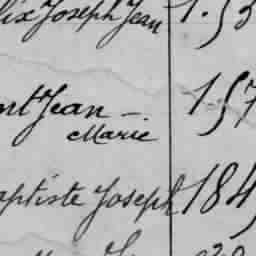 lix Joseph Jean 1.53
nt Jean - 157
Marie
aptiste Joseph 184